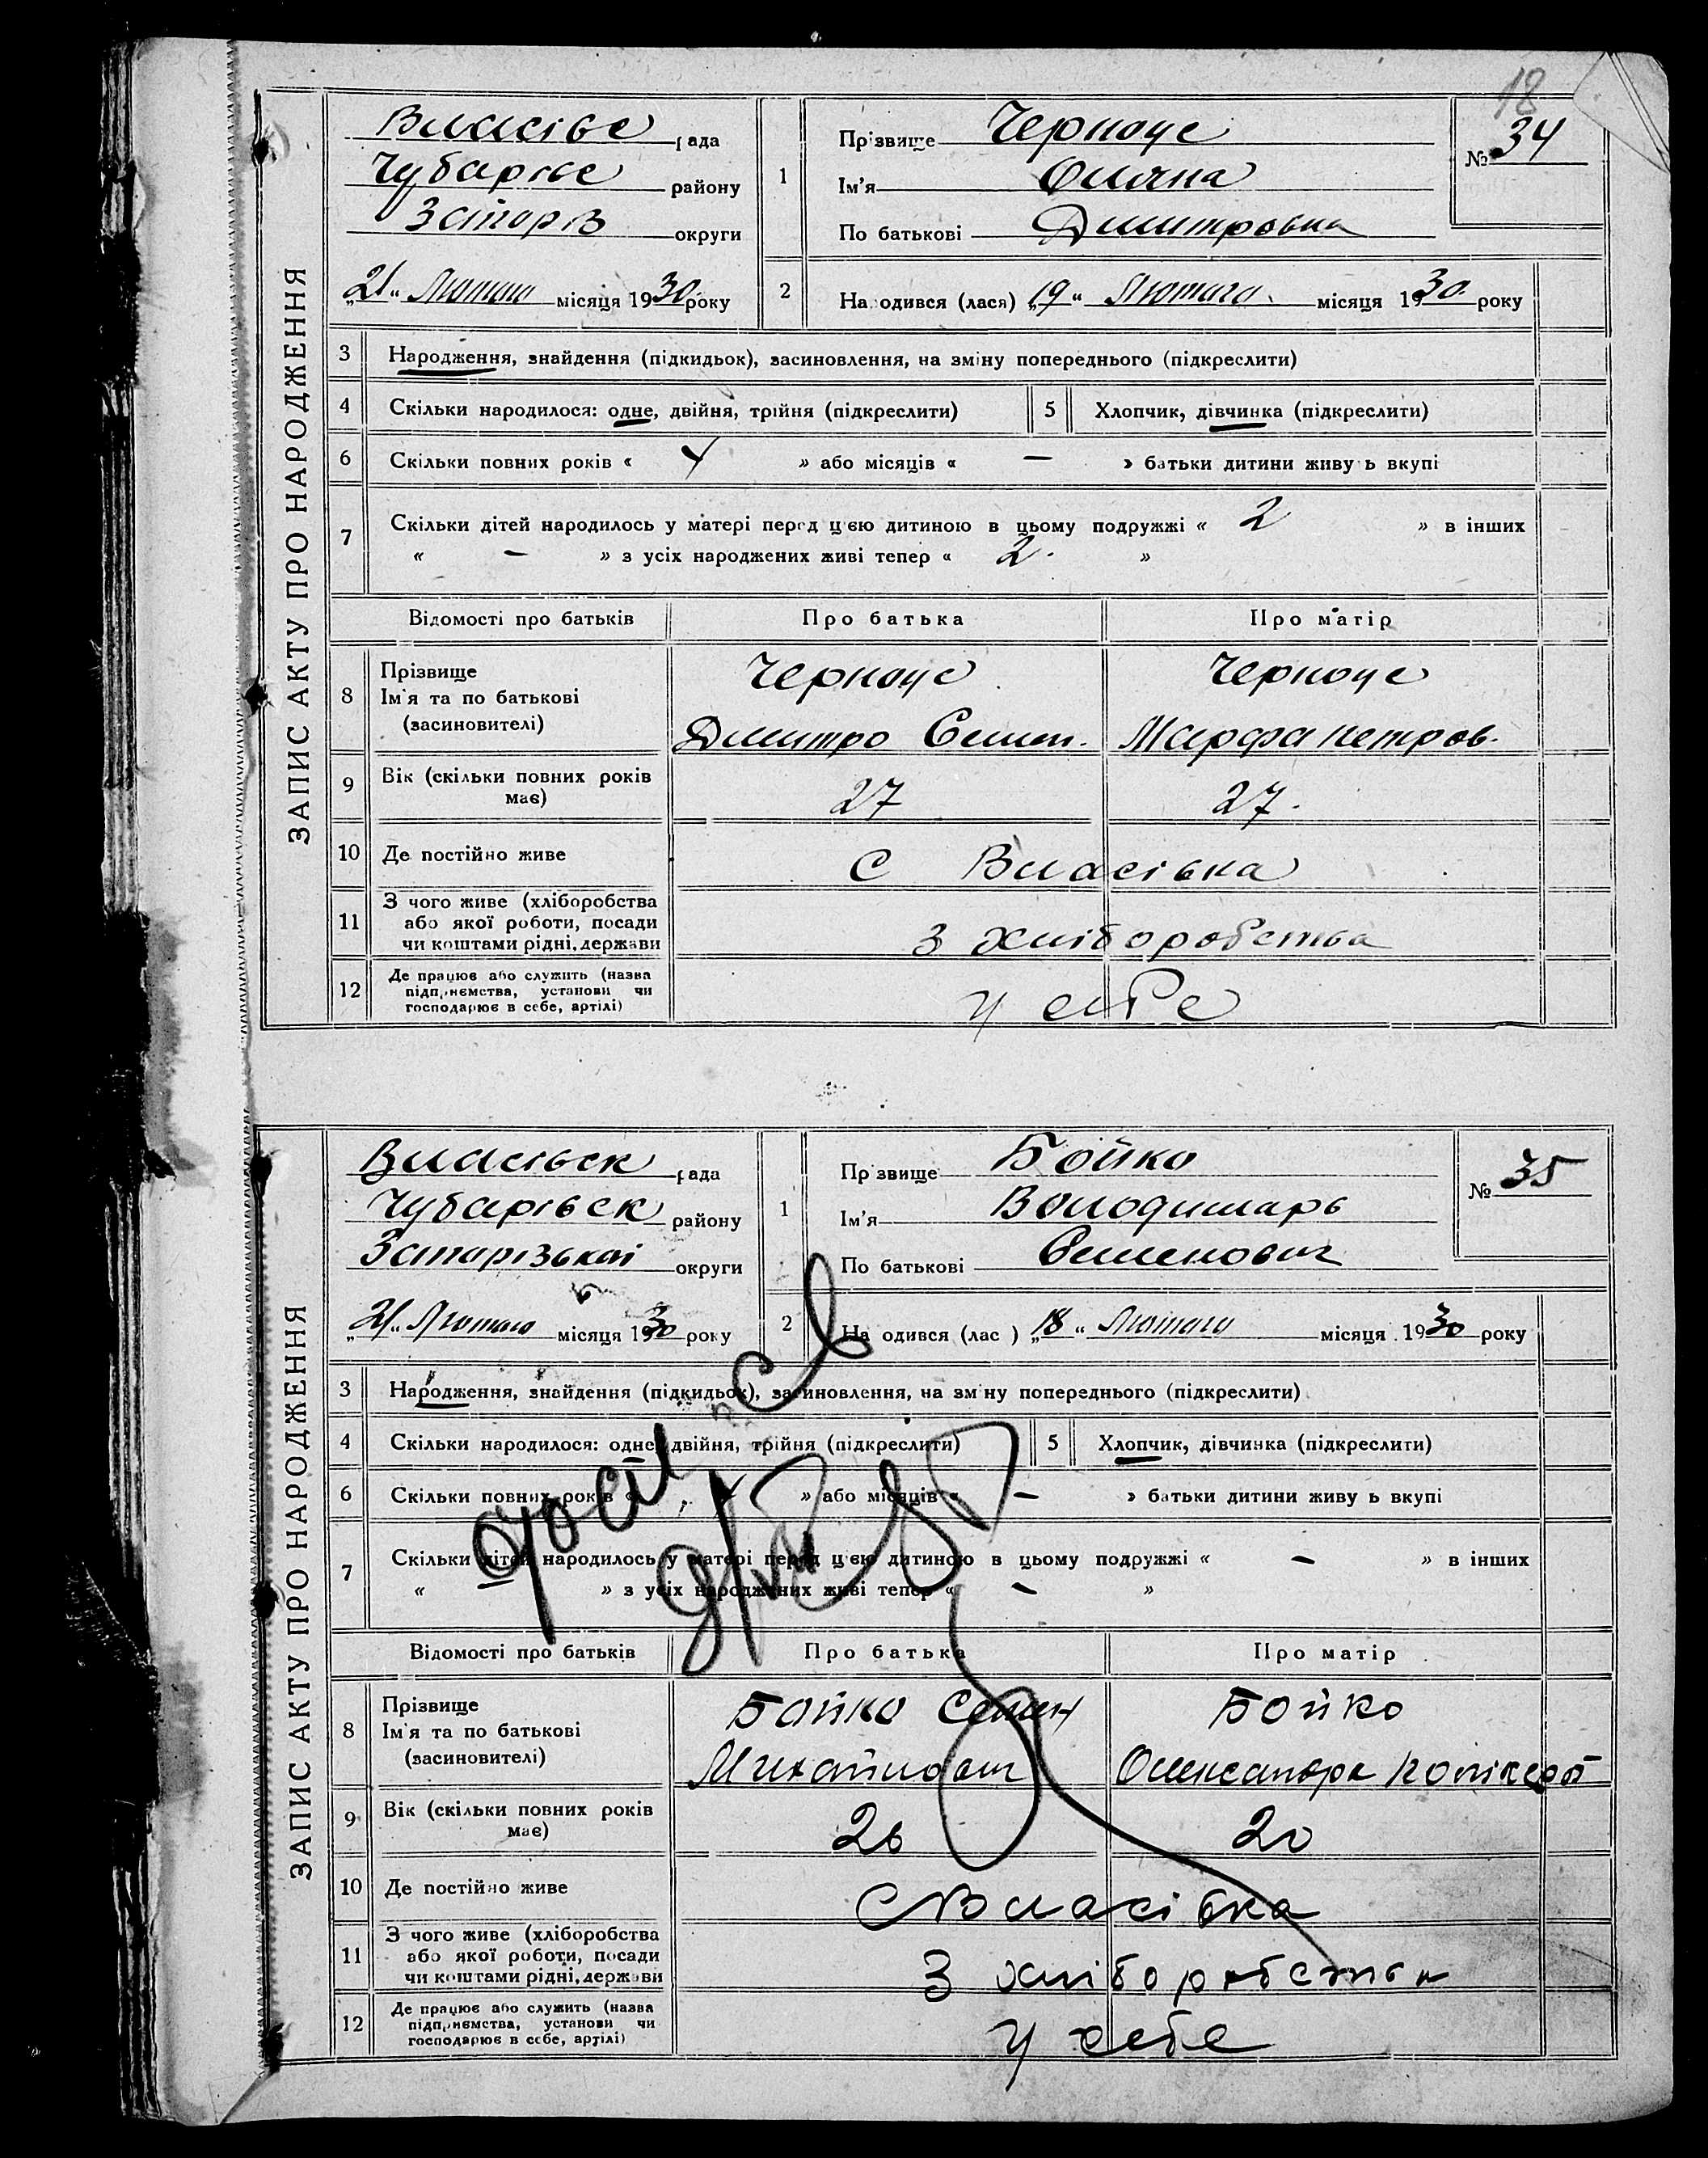 18
ЗАПИС АКТУ ПРО НАРОДЖЕННЯ
Власівс рада
Чубарівс району
Запоріз округи
„21“ Лютого місяця 1930 року
1
Прізвище Черноус
Ім'я Оляна
По батькові Дмитровна
№ 34
2 Народився (лася) „19“ Лютого місяця 1930 року
3 Народження, знайдення (підкидьок), засиновлення, на зміну попереднього (підкреслити)
4 Скільки народилося: одне, двійня, трійня (підкреслити)
5 Хлопчик, дівчинка (підкреслити)
6 Скільки повних років « » або місяців « — » батьки дитини живуть вкупі
7 Скільки дітей народилось у матері перед цією дитиною в цьому подружжі « 2 » в інших
« — » з усіх народжених живі тепер « 2. »
Відомості про батьків Про батька Про матір
8 Прізвище
Ім'я та по батькові
(засиновителі)
Черноус
Дмитро Семен.
Черноус
Марфа Петров.
9 Вік (скільки повних років
має)
27 27.
10 Де постійно живе С Власівка
11 З чого живе (хліборобства
або якої роботи, посади
чи коштами рідні, держави
З хліборобства
12 Де працює або служить (назва
підприємства, установи чи
господарює в себе, артілі)
У себе
ЗАПИС АКТУ ПРО НАРОДЖЕННЯ
Власівск рада
Чубарівск району
Запорізькоі округи
„21“ Лютого місяця 1930 року
1
Прізвище Бойко
Ім'я Володимарь
По батькові Семенович
№ 35
2 Народився (лас ) „18“ Лютого місяця 1930 року
3 Народження, знайдення (підкидьок), засиновлення, на зміну попереднього (підкреслити)
4 Скільки народилося: одне, двійня, трійня (підкреслити)
5 Хлопчик, дівчинка (підкреслити)
6 Скільки повних років « » або місяців « — » батьки дитини живуть вкупі
7 Скільки дітей народилось у матері перед цією дитиною в цьому подружжі « — » в інших
« — » з усіх народжених живі тепер « — »
Відомості про батьків Про батька Про матір
8 Прізвище
Ім'я та по батькові
(засиновителі)
Бойко Семен
Михайлович
Бойко
Олександра
9 Вік (скільки повних років
має)
26 20
10 Де постійно живе С Власівка
11 З чого живе (хліборобства
або якої роботи, посади
чи коштами рідні, держави
З хліборобства
12 Де працює або служить (назва
підприємства, установи чи
господарює в себе, артілі)
У себе